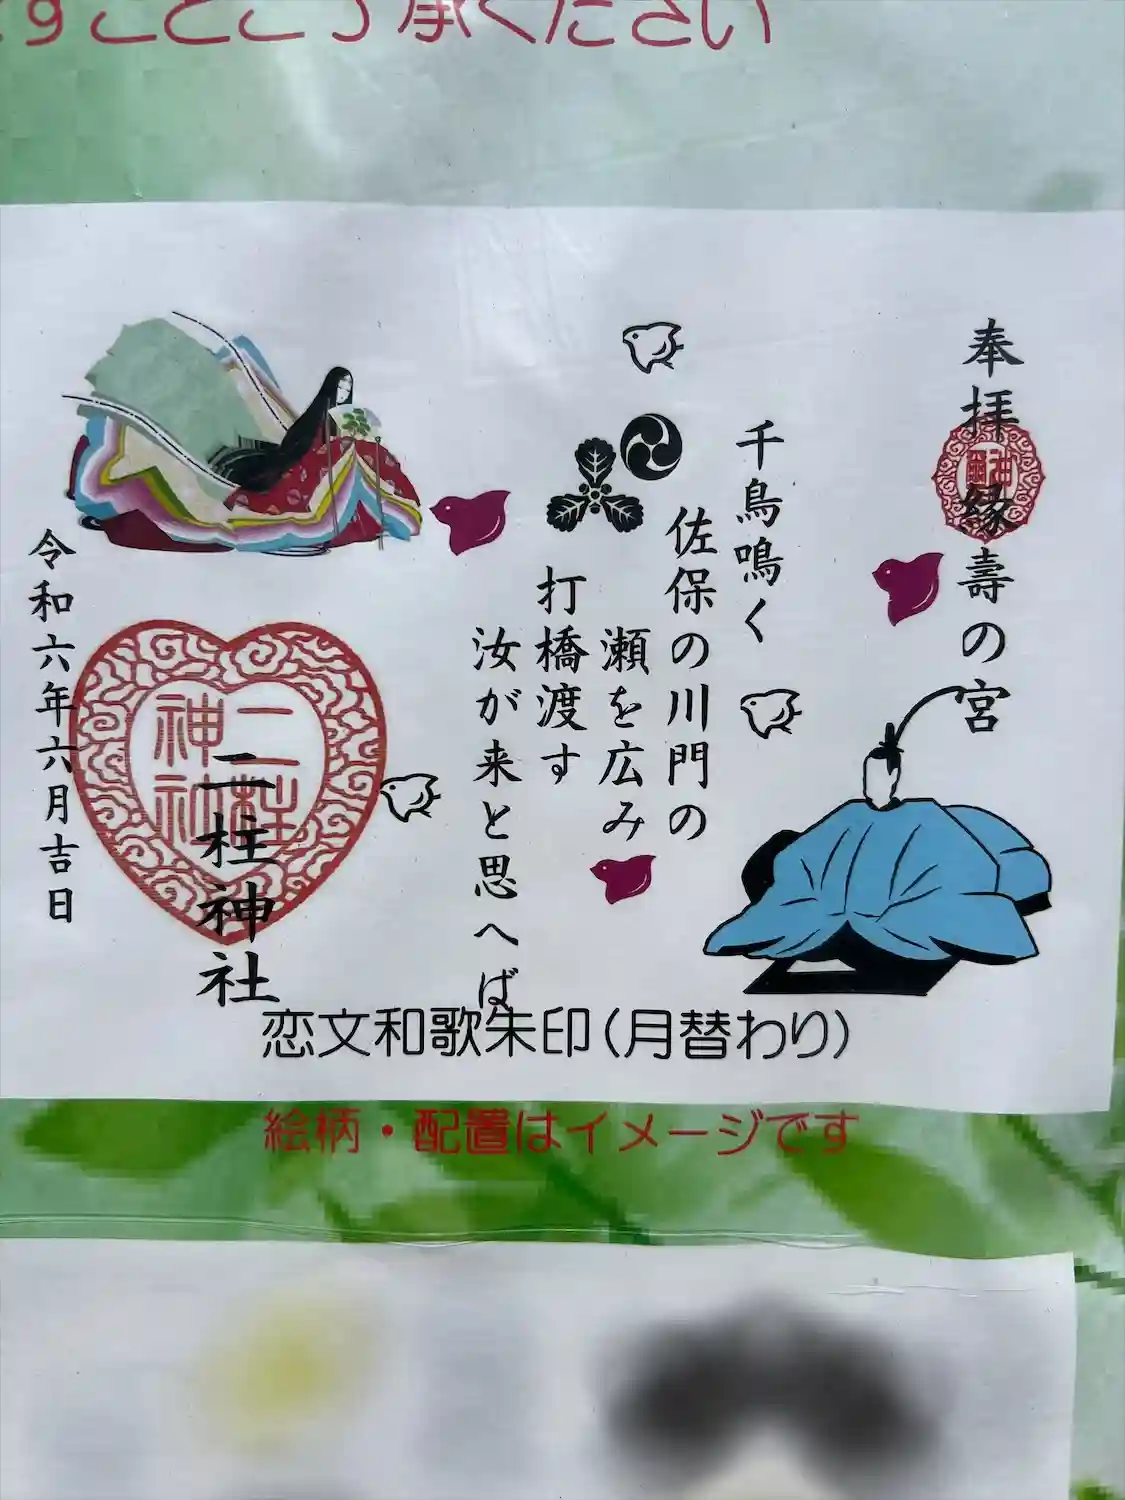 すことご了承ください
奉拝
縁壽の宮
千鳥鳴く
佐保の川門の
瀬を広み
打橋渡す
汝が来と思へば
二柱神社
二柱
神社
令和六年六月吉日
恋文和歌朱印(月替わり)
絵柄・配置はイメージです